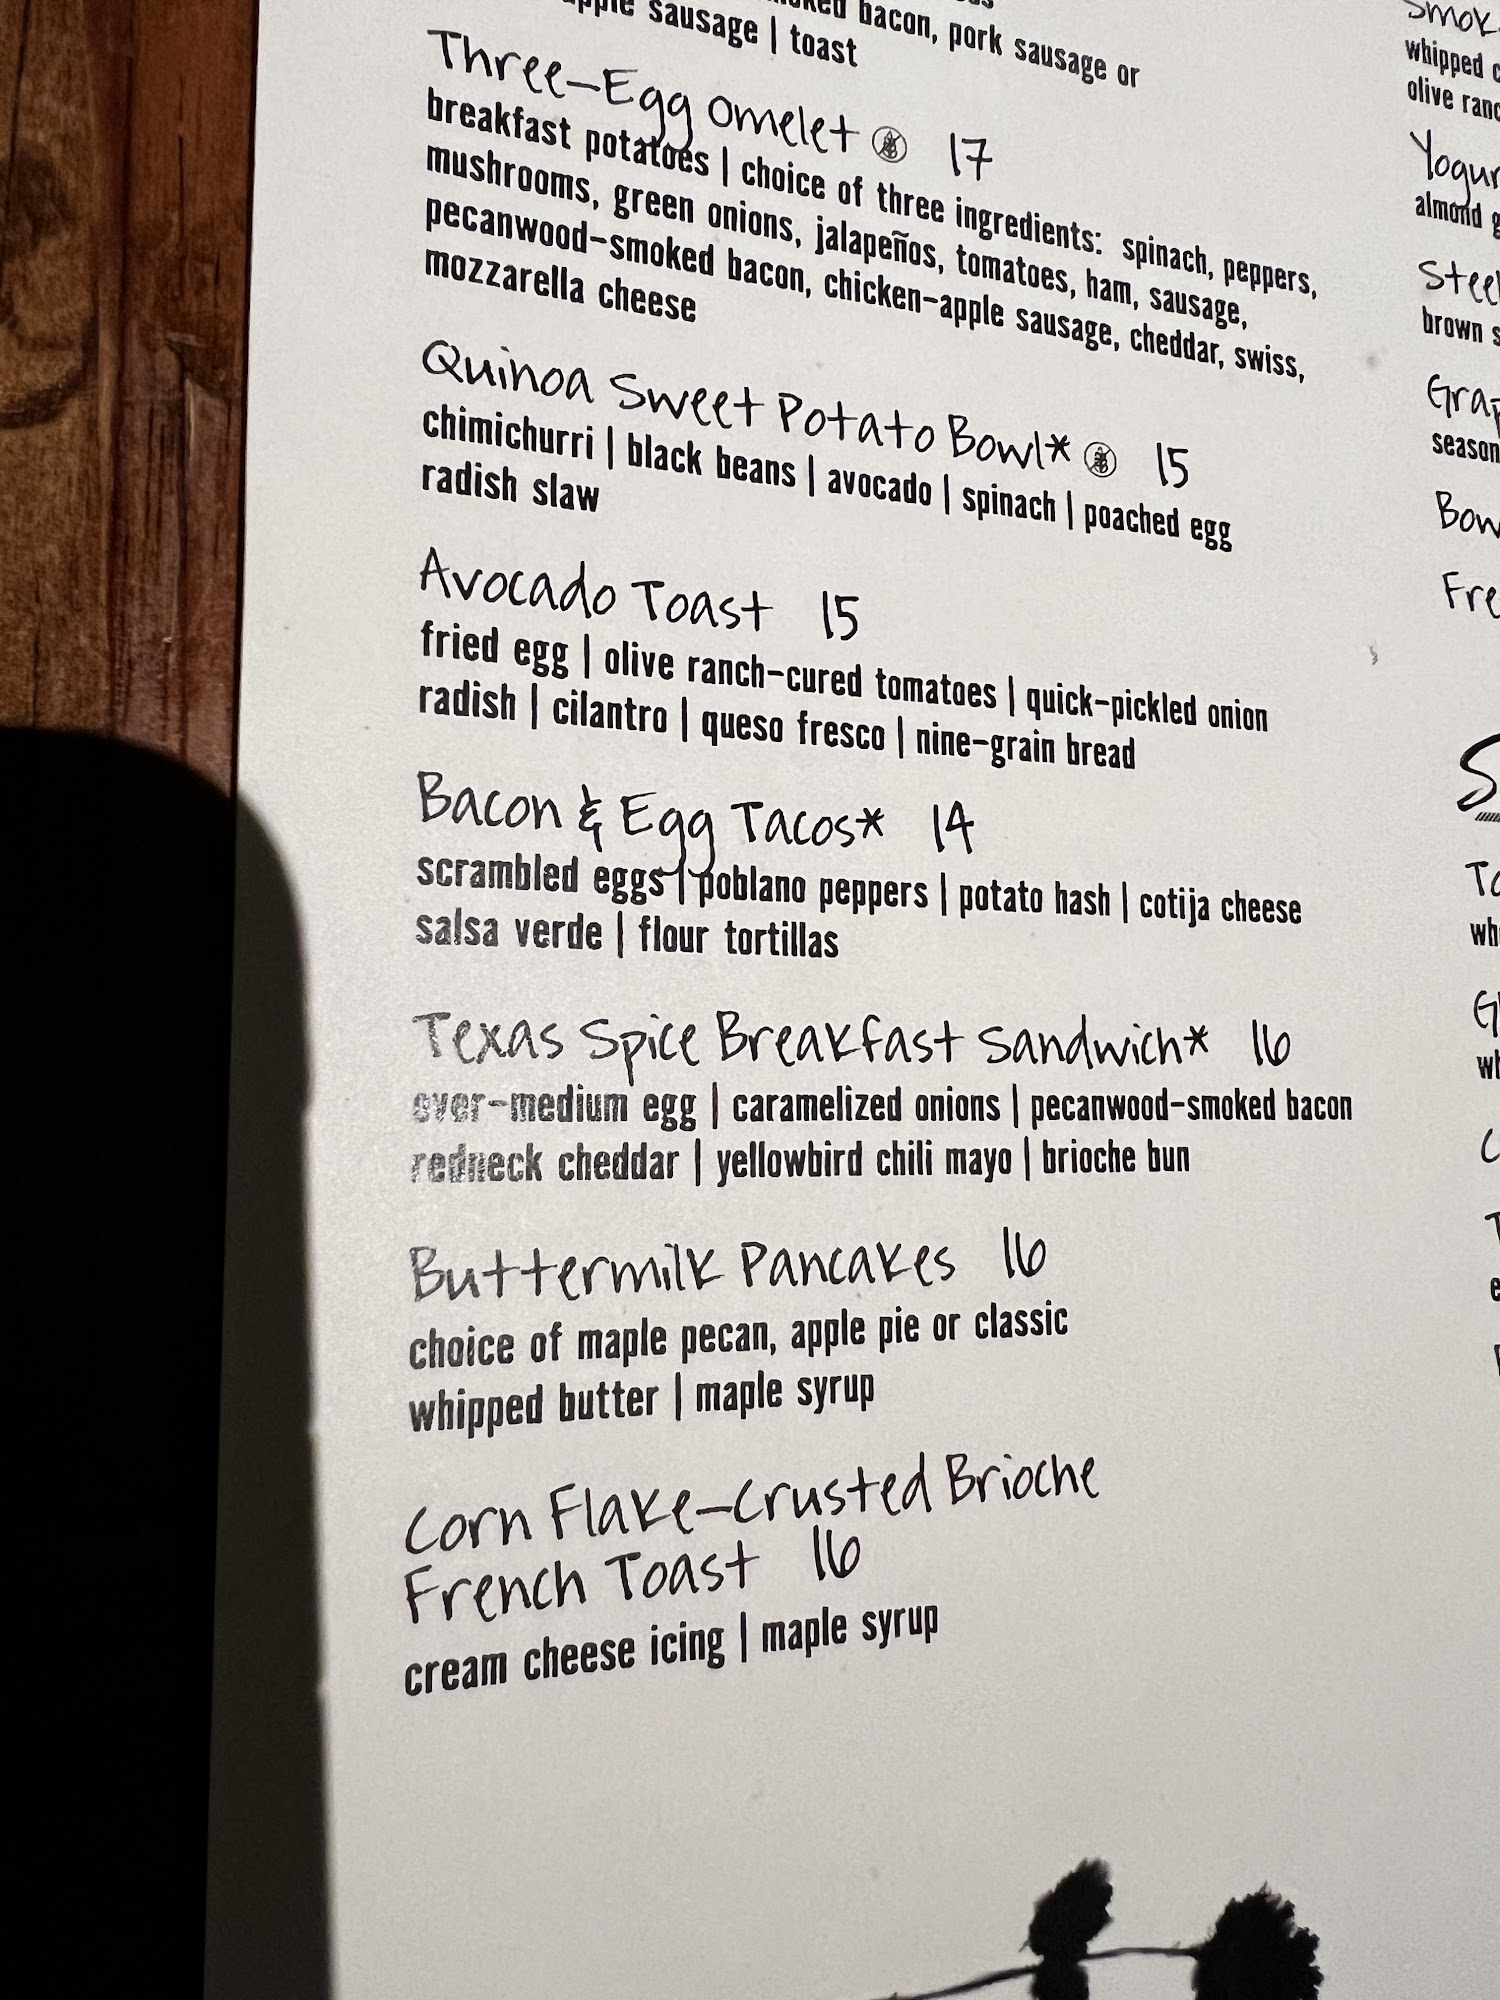 bacon, pork sausage or
sausage | toast
Three-Egg Omelet 17
breakfast potatoes | choice of three ingredients: spinach, peppers,
mushrooms, green onions, jalapeños, tomatoes, ham, sausage,
pecanwood-smoked bacon, chicken-apple sausage, cheddar, swiss,
mozzarella cheese
Quinoa Sweet Potato Bowl* 15
chimichurri | black beans | avocado | spinach | poached egg
radish slaw
Avocado Toast 15
fried egg | olive ranch-cured tomatoes | quick-pickled onion
radish | cilantro | queso fresco | nine-grain bread
Bacon & Egg Tacos* 14
scrambled eggs | poblano peppers | potato hash | cotija cheese
salsa verde | flour tortillas
Texas Spice Breakfast Sandwich* 16
over-medium egg | caramelized onions | pecanwood-smoked bacon
redneck cheddar | yellowbird chili mayo | brioche bun
Buttermilk Pancakes 16
choice of maple pecan, apple pie or classic
whipped butter | maple syrup
Corn Flake-Crusted Brioche
French Toast 16
cream cheese icing | maple syrup
whipped
olive
almond
brown